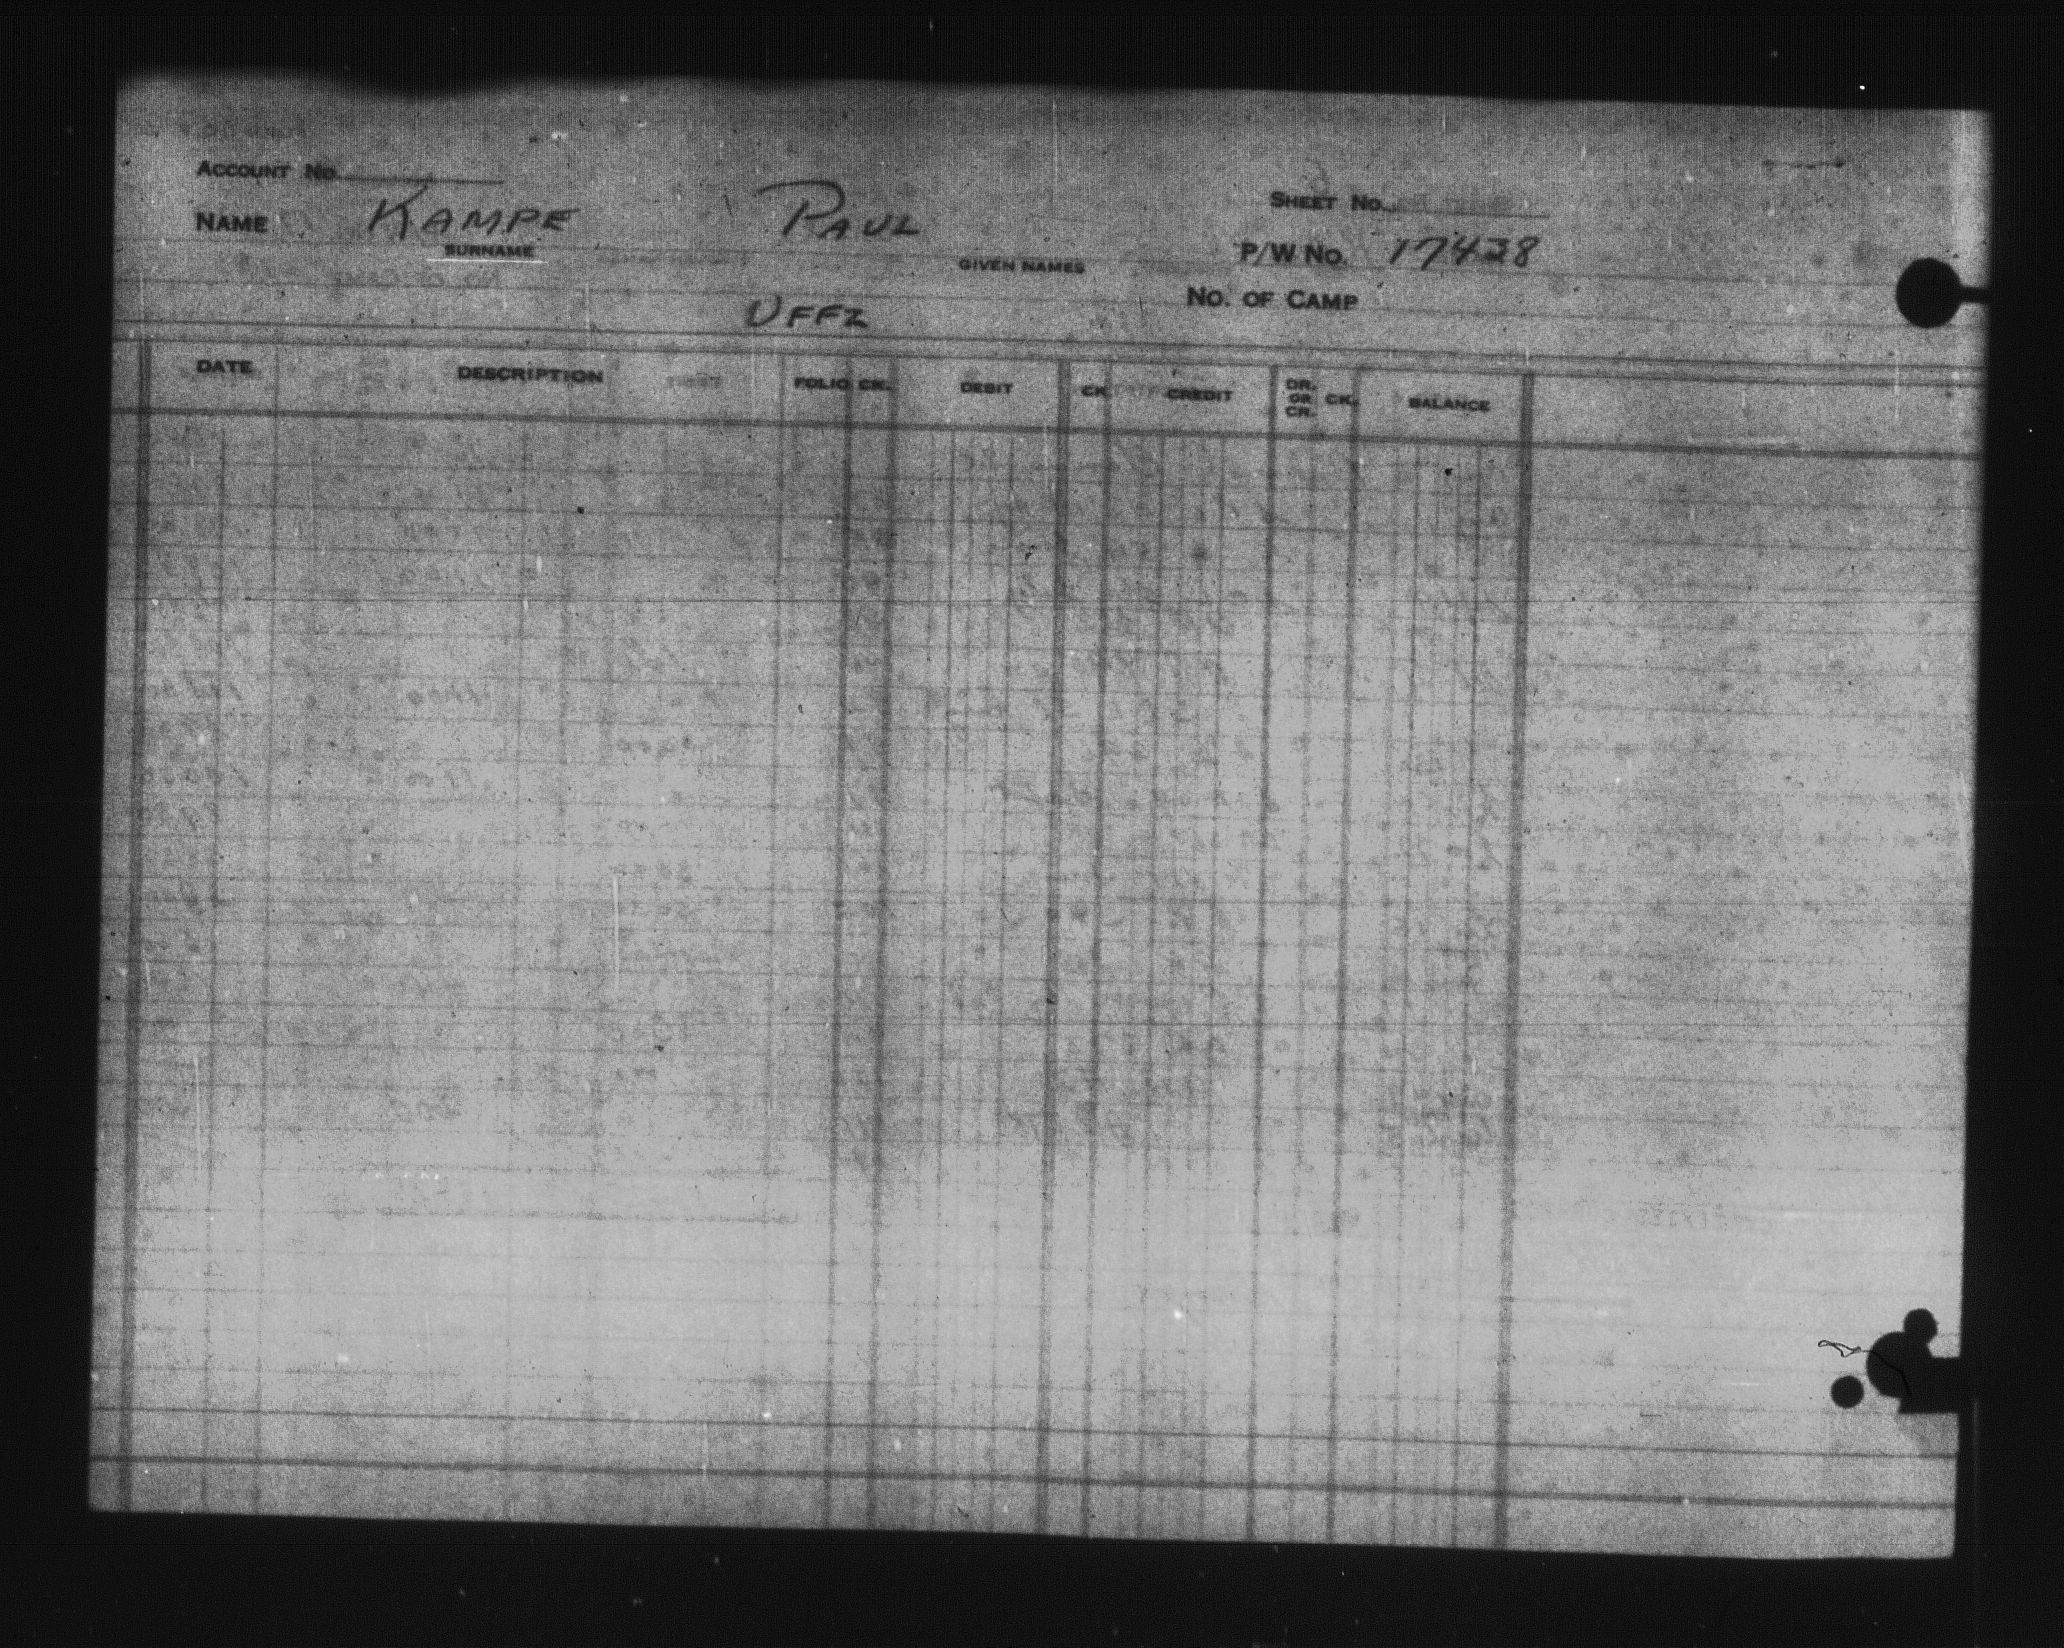 ACCOUNT NO.
SHEET NO.
NAME KAMPE PAUL
P/W NO. 17438
SURNAME
GIVEN NAMES
NO. OF CAMP
UFFZ
DATE DESCRIPTION FOLIO CK. DEBIT CK. CREDIT DR. OR CR. CK. BALANCE